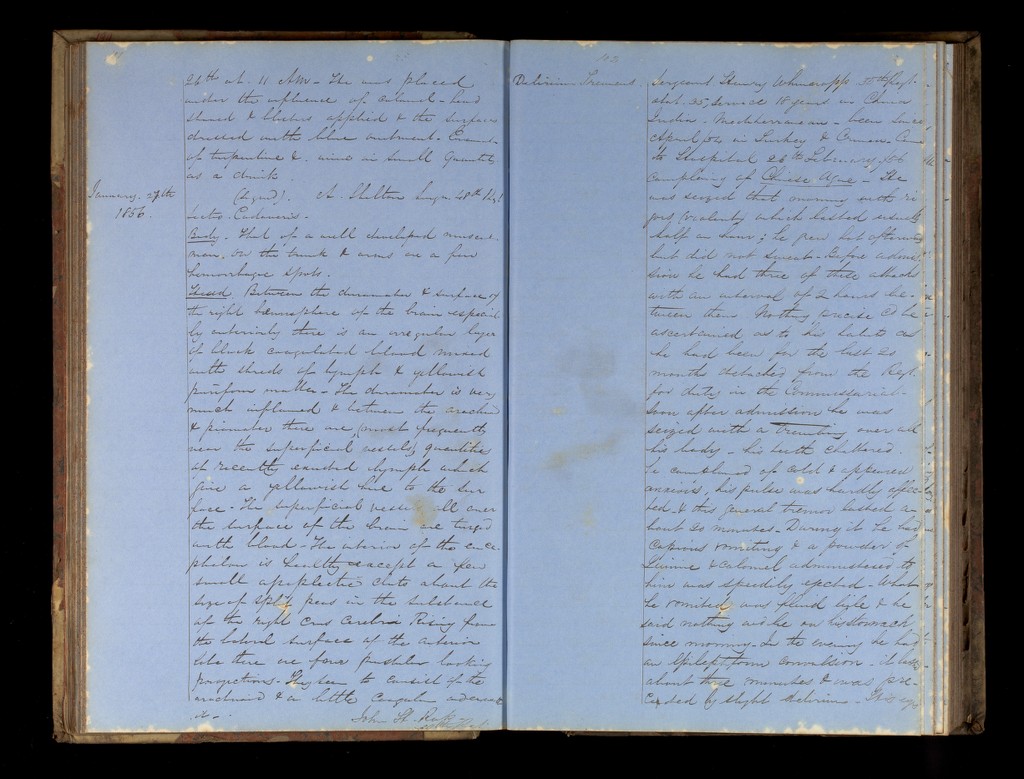 26th at 11 AM - She was placed
under the influence of calomel - head
shaved & blisters applied & the surface
dressed with blue ointment.
of turpentine & wine in small quantity
as a drink.
January 27th
1856.
(Signed) A. Shelton Surgn 48th Regt
Sectio Cadaveris -
Body. That of a well developed muscu-
man. On the trunk & arms are a few
hemorrhagic spots.
Head. Between the duramater & surface of
the right hemisphere of the brain especial
ly anteriorly there is an irregular layer
of black coagulated blood mixed
with shreds of lymph & yellowish
puriform matter - The duramater is very
much inflamed & between the arachnd
& piamater there are (most frequently
near the superficial vessels) quantities
of recently exuded lymph which
give a yellowish hue to the sur
face - The superficial vessels all over
the surface of the brain are turgid
with blood - The interior of the ence
phalon is healthy except a few
small apoplectic clots about the
size of split peas in the substance
of the right Crus Cerebri Rising from
the lateral surface of the anterior
lobe there are four pustular looking
projections - They seem to consist of the
arachnoid & a little
John H.
142
Delirium Tremens
Sergeant Henry 50th Regt
aet. 35, Service 18 years in China
India - Mediterranean - been since
April /54 in Turkey & Crimea - Came
to Hospital 26th February /56
complaining of Chinese Ague - He
was seized that morning with ri
gors (violently) which lasted
half an hour; he grew hot afterwds
but did not sweat - Before admis
sion he had three of these attacks
with an interval of 2 hours be-
tween them Nothing precise could be
ascertained as to his habits as
he had been for the last 20
months detached from the Regt
for duty in the Commissariat -
Soon after admission he was
seized with a trembling over all
his body - his teeth chattered.
He complained of cold & appeared
anxious, his pulse was hardly affec-
ted & this general tremor lasted a-
bout 20 minutes - During it he had
copious vomiting & a powder of
Quinine & Calomel administered to
him was speedily ejected - What
he vomited was fluid bile & he
said nothing wd lie on his stomach
since morning - In the evening he had
an Epileptiform convulsion - it last
about three minutes & was pre-
ceeded by slight delirium -